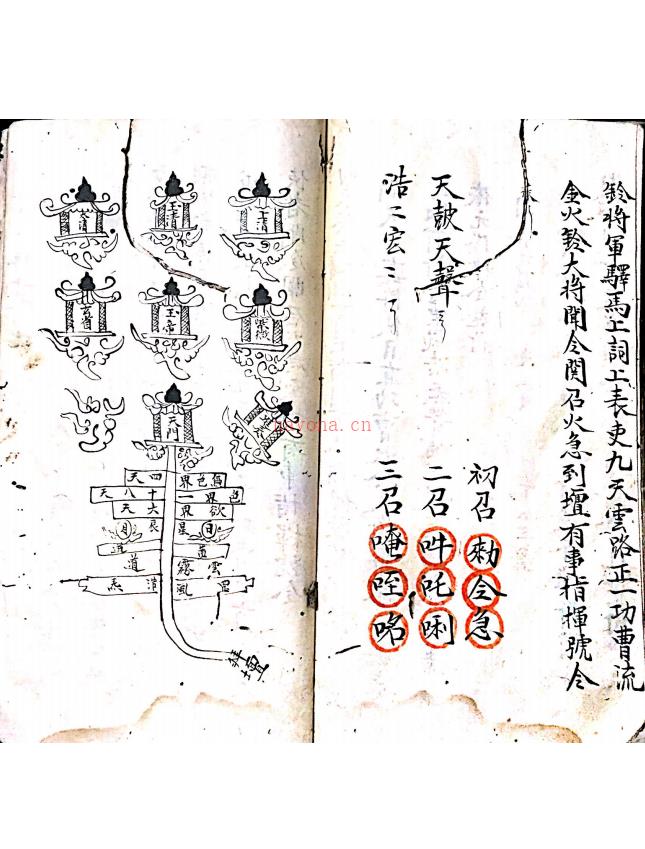 鈴將軍驛馬上詞上表吏九天雲路正一功曹流
金火鈴大將聞令関召火急到壇有事指揮號令
初召勅令急
天皷天聲
二召吽吒唎
浩二宏二
三召唵咥
上清
玉清
太清
紫微
玉帝
玄省
天門
無色界四天
色界一十八天
欲界六天
日星辰月
雲露道
罡風
壇